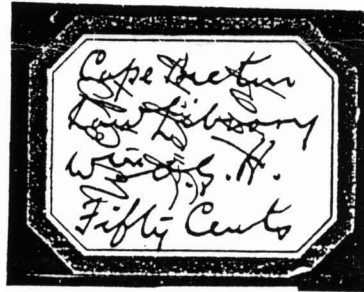 Cape Breton
Law Library
G. H.
Fifty Cents